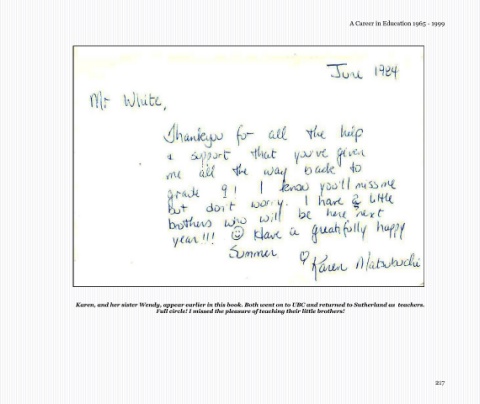 A Career in Education 1965 - 1999
June 1984
Mr White,
Thankyou for all the help
& support that you've given
me all the way back to
grade 9! I know you'll miss me
but don't worry. I have 2 little
brothers who will be here next
year!!! Have a greatifully happy
Summer
Karen Matsubuchi
Karen, and her sister Wendy, appear earlier in this book. Both went on to UBC and returned to Sutherland as teachers.
Full circle! I missed the pleasure of teaching their little brothers!
217